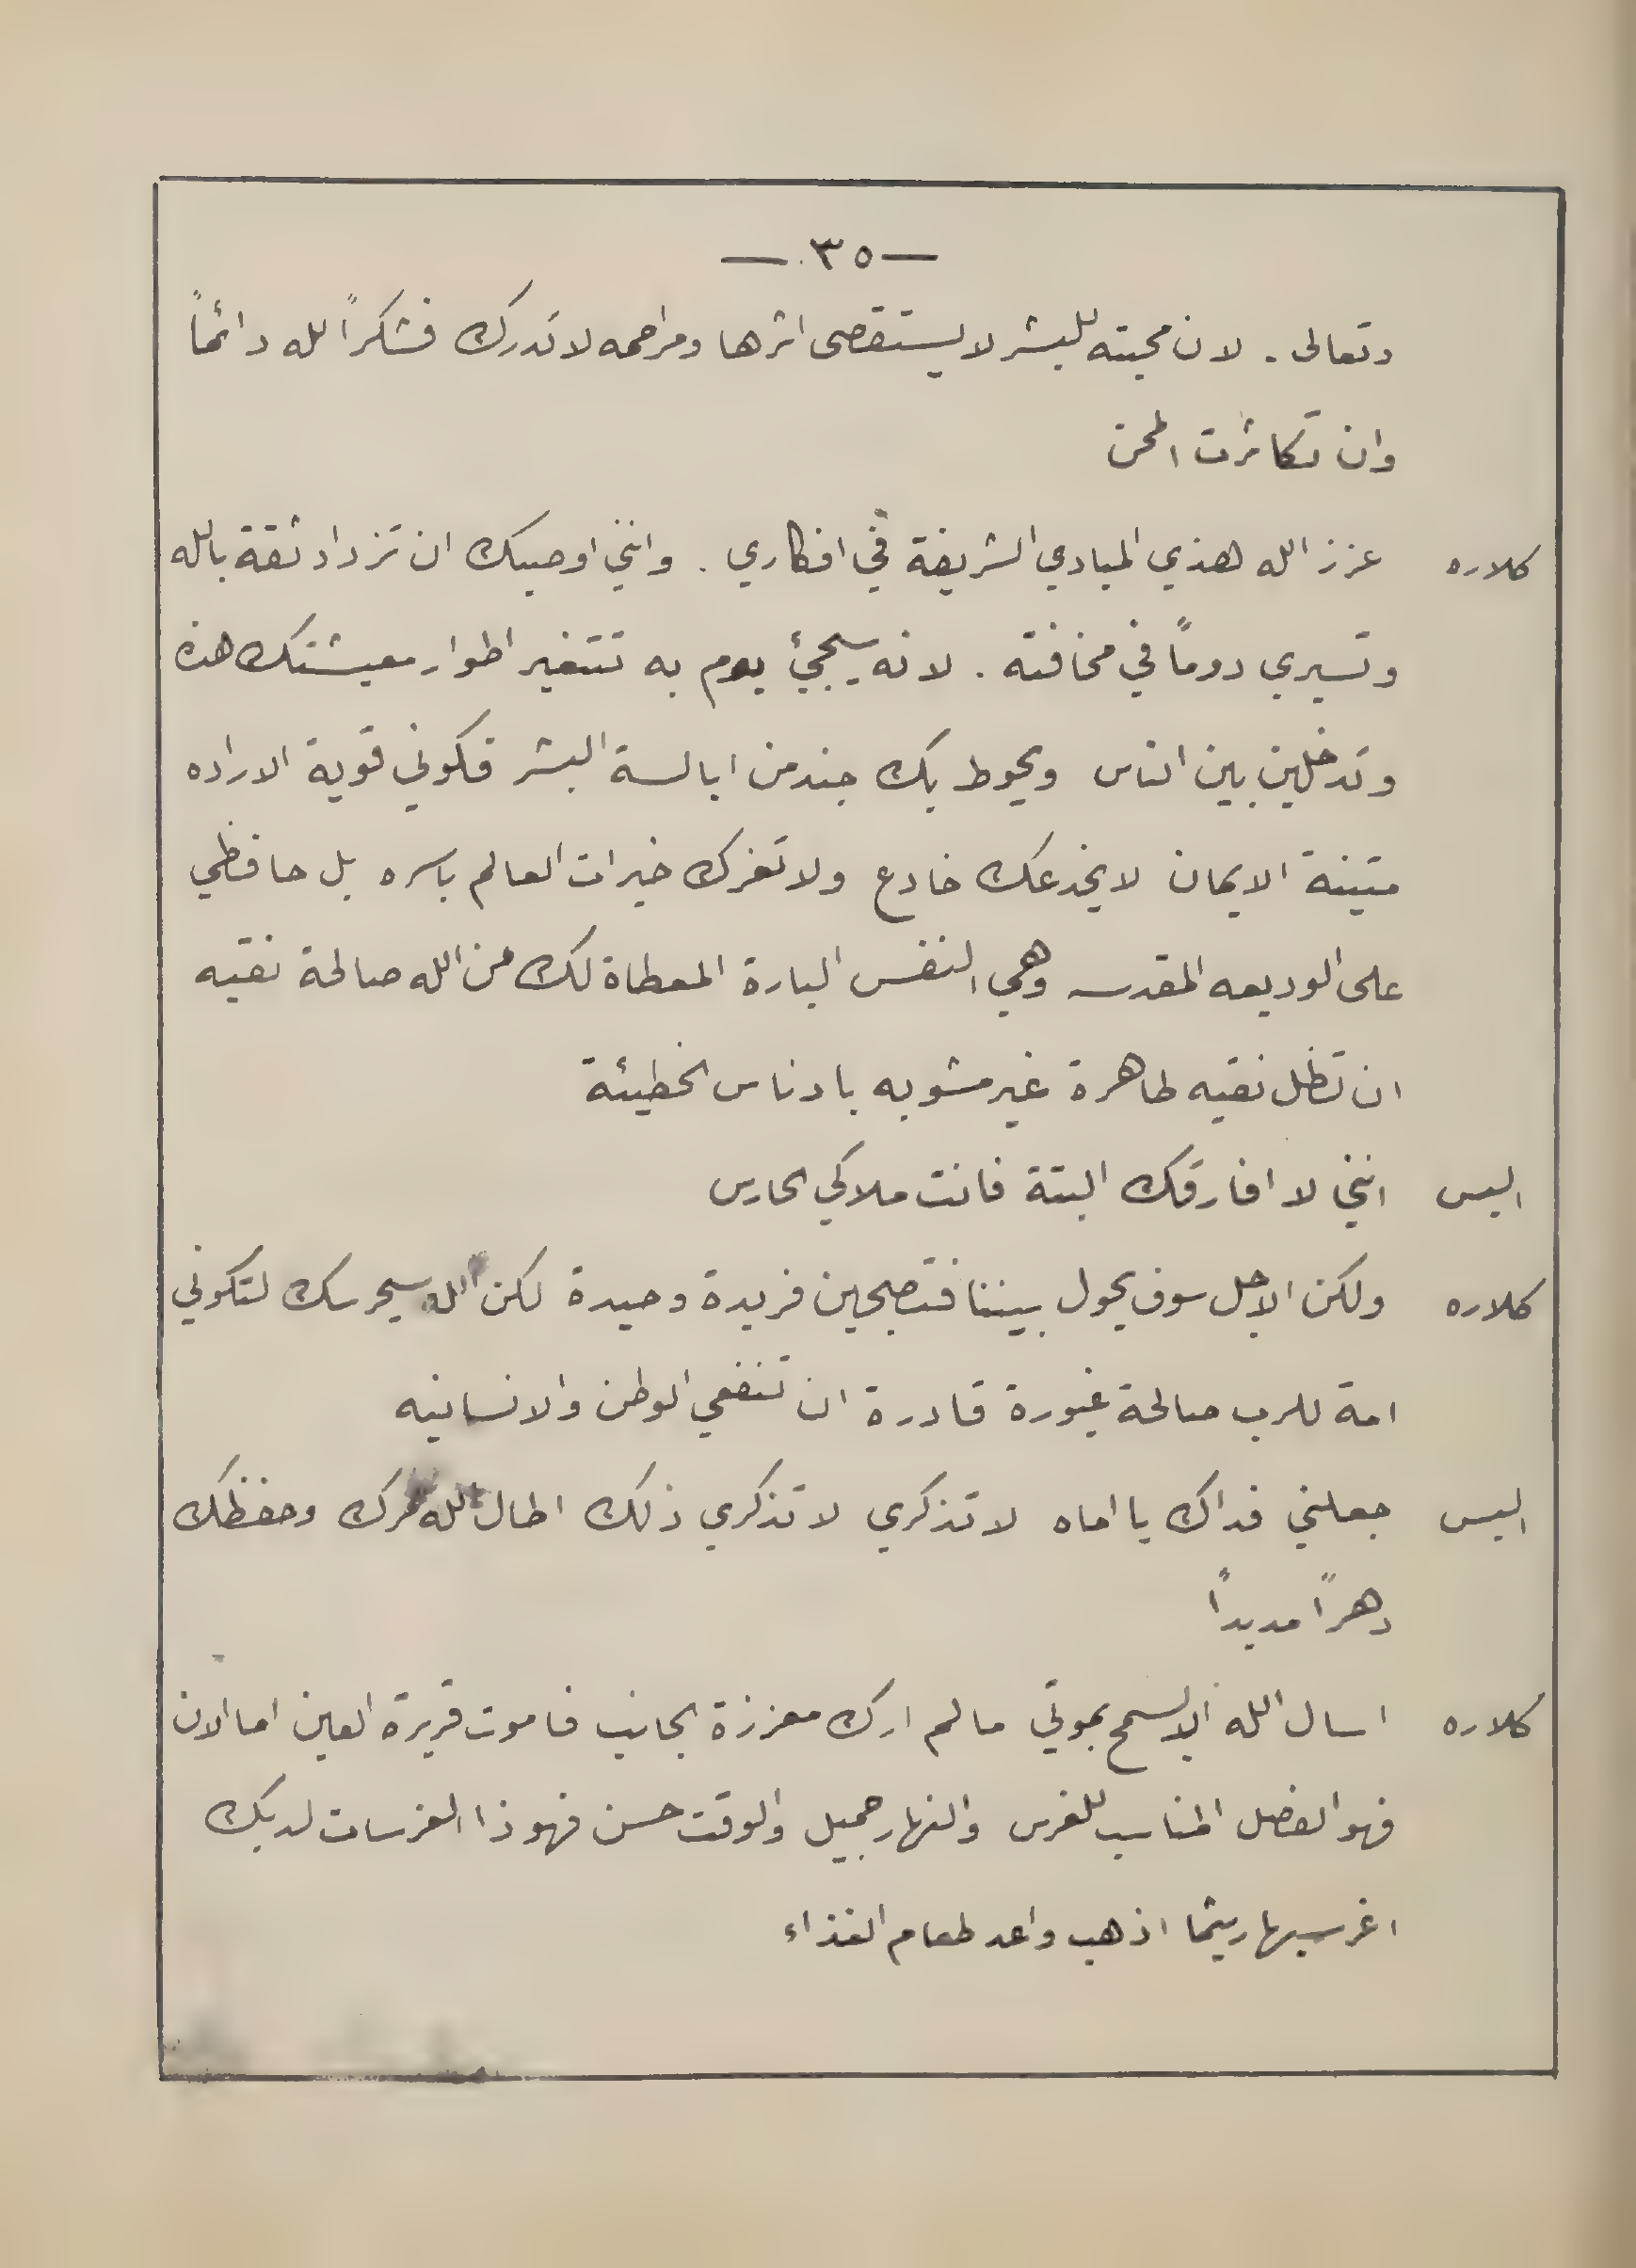 — ٣٥ —
وتعالى . لان محبته للبشر لا يستقصى اثرها ومراحمه لا تدرك فشكراً لله دائماً
وان تكاثرت المحن
كلاره عزز الله هذي المبادي الشريفة في افكاري . وانني اوصيك ان تزداد ثقة بالله
وتسيري دوماً في مخافته . لانه سيجيئ يوم به تتغير اطوار معيشتك هذه
وتدخلين بين الناس ويحوط بك جند من ابالسة البشر فكوني قوية الاراده
متينة الايمان لا يخدعك خادع ولا تغرك خيرات العالم باسره بل حافظي
على الوديعه المقدسه وهي النفس البارة المعطاة لك من الله صالحة نقيه
ان تظل نقيه طاهرة غير مشوبه بادناس الخطيئة
اليس انني لا افارقك البتة فانت ملاكي الحارس
كلاره ولكن الاجل سوف يحول بيننا فتصبحين فريدة وحيدة لكن الله سيحرسك لتكوني
امة للرب صالحة غيورة قادرة ان تنفعي الوطن والانسانيه
اليس جعلني فداك يا اماه لا تذكري لا تذكري ذلك اطال الله عمرك وحفظك
دهراً مديداً
كلاره اسال الله الا يسمح بموتي ما لم ارك معززة الجانب فاموت قريرة العين اما الان
فهو الفصل المناسب للغرس والنهار جميل والوقت حسن فهوذا الغرسات لديك
اغرسيها ريثما اذهب واعد طعام الغذاء